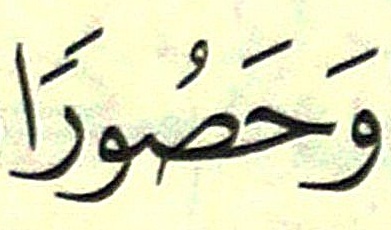 وَحَصُورًا